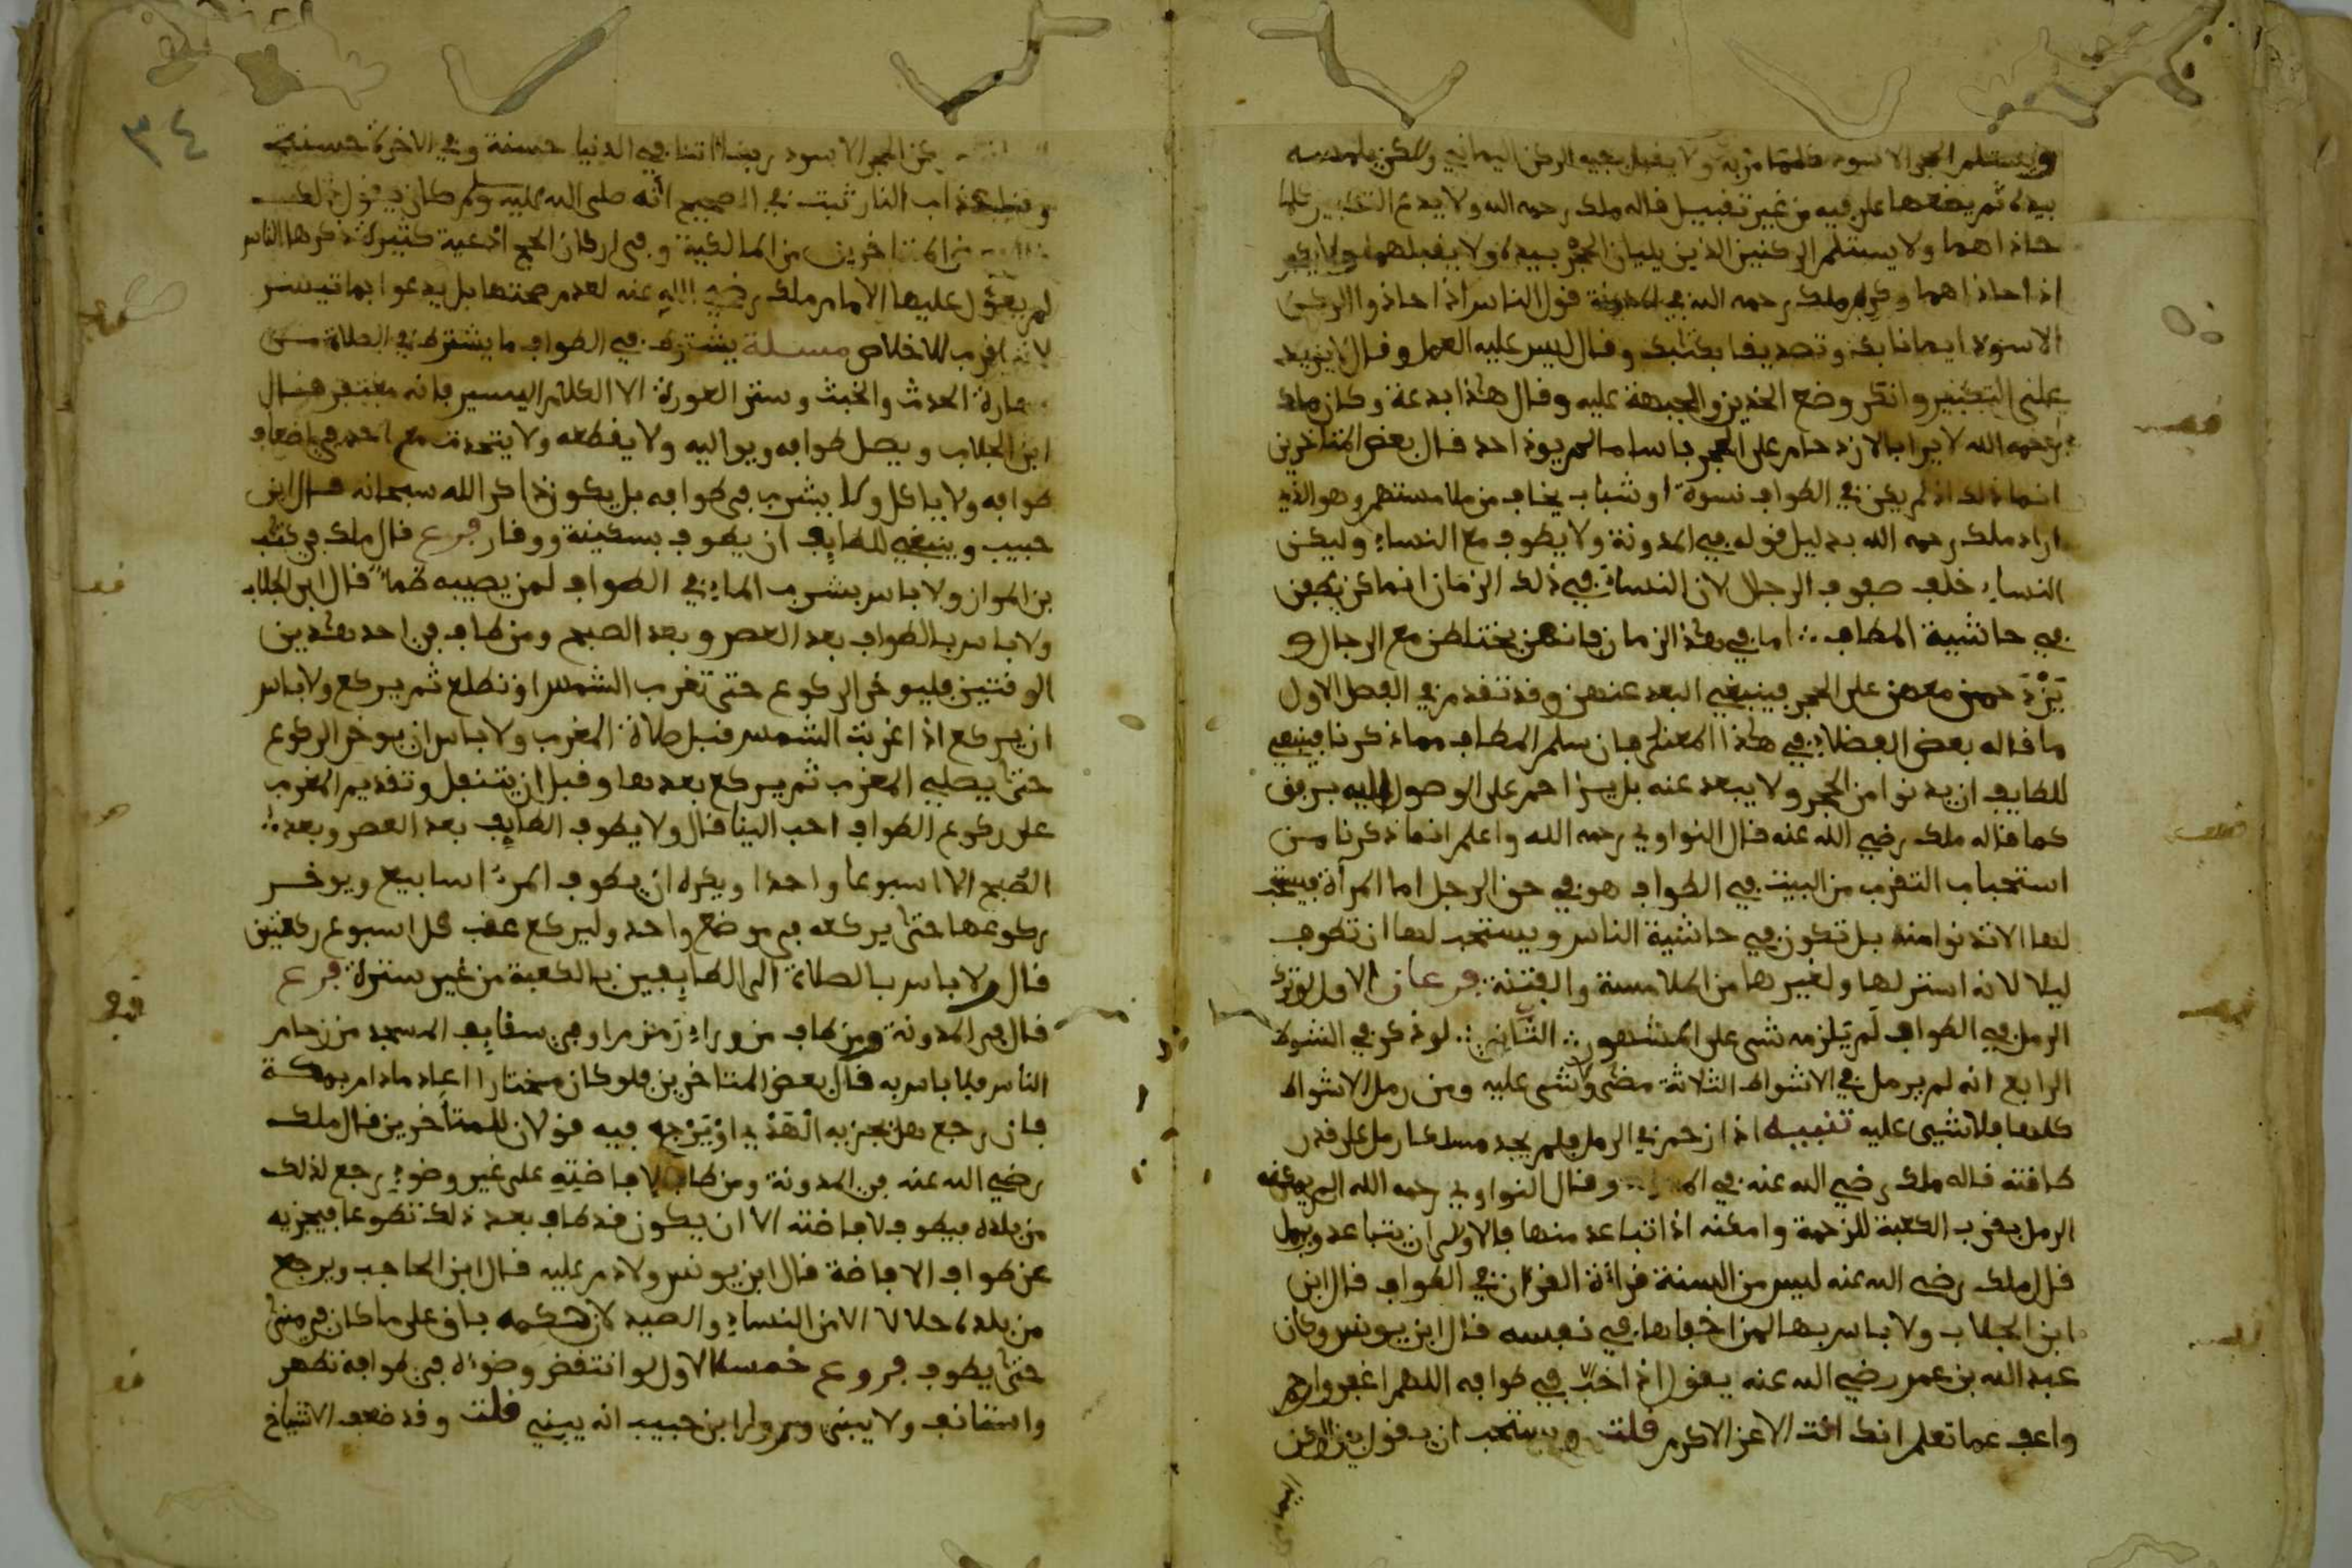 ويستلم الحجر الاسود كلما مر به ولا يقبل بفيه الركن اليماني ولكن يلمسه
بيده ثم يضعها على فيه من غير تقبيل قاله ملك رحمه الله ولا يدع التكبير كلما
حاذاهما ولا يستلم الركنين الذين يليان الحجر بيده ولا يقبلهما ولا يكبر
اذا حاذاهما وكره ملك رحمه الله في المدونة قول الناس اذا حاذوا الركن
الاسود ايمانا بك وتصديقا بكتابك وقال ليس عليه العمل وقال لا يزيد
على التكبير وانكر وضع الخدين والجبهة عليه وقال هذا بدعة وكان ملك
رحمه الله لا يرا بالازدحام على الحجر باسا ما لم يوذ احد قال بعض المتاخرين
انما ذلك اذ لم يكن في الطواف نسوة او شباب يخاف من ملامستهم وهو الذي
اراد ملك رحمه الله بدليل قوله في المدونة ولا يطوف مع النساء وليكن
النساء خلف صفوف الرجال لان النساء في ذلك الزمان انما كن يطفن
في حاشية المطاف اما في هذا الزمان فانهن يختلطن مع الرجال و
يزدحمن معهن على الحجر فينبغي البعد عنهن وقد تقدم في الفصل الاول
ما قاله بعض الفضلاء في هذا المعنى فان سلم المطاف مما ذكرنا فينبغي
للطايف ان يدنوا من الحجر ولا يبعد عنه بل يزاحم على الوصول اليه برفق
كما قاله ملك رضي الله عنه قال النواوي رحمه الله واعلم انما ذكرنا من
استحباب التقرب من البيت في الطواف هو في حق الرجل اما المرأة فيستحب
لها الا تدنوا منه بل تكون في حاشية الناس ويستحب لها ان تطوف
ليلا لانه استر لها ولغيرها من الملامسة والفتنة فرعان الاول لو ترك
الرمل في الطواف لم يلزمه شي على المشهور الثاني لو ذكر في الشوط
الرابع انه لم يرمل في الاشواط الثلاثة مضى ولا شي عليه ومن رمل الاشواط
كلها فلا شيى عليه تنبيه اذا زحم في الرمل فلم يجد مسلكا رمل على قدر
طاقته قاله ملك رضي الله عنه في وقال النواوي رحمه الله ان لم يمكنه
الرمل بقرب الكعبة للزحمة وامكنه اذا تباعد منها فالاولى ان يتباعد ويرمل
قال ملك رضي الله عنه ليس من السنة قرأة القران في الطواف قال ابن
ابن الجلاب ولا باس بها لمن اخفاها في نفسه قال ابن يونس وكان
عبد الله بن عمر رضي الله عنه يقول اذا اخب في طوافه اللهم اغفر وارحم
واعف عما تعلم انك انت الاعز الاكرم قلت ويستحب ان يقول بين الركن
٣٤
الحجر الاسود ربنا اتنا في الدنيا حسنة وفي الاخرة حسنة
وقنا عذاب النار ثبت في الصحيح انه صلى الله عليه وسلم كان يقول ذلك
المتاخرين من المالكية في اركان الحج ادعية كثيرة ذكرها الناس
لم يعول عليها الامام ملك رضي الله عنه لعدم صحتها بل يدعوا بما تيسر
لانه اقرب للاخلاص مسلة يشترط في الطواف ما يشترط في الصلاة من
طهارة الحدث والخبث وستر العورة الا الكلام اليسير فانه مغتفر قال
ابن الجلاب ويصل طوافه ويواليه ولا يقطعه ولا يتحدث مع احد في اضعاف
طوافه ولا ياكل ولا يشرب في طوافه بل يكون ذاكر الله سبحانه قال ابن
حبيب وينبغي للطايف ان يطوف بسكينة ووقار فرع قال ملك في كتب
بن المواز ولا باس بشرب الماء في الطواف لمن يصيبه ظما قال ابن الجلاب
ولا باس بالطواف بعد العصر وبعد الصبح ومن طاف في احد هذين
الوقتين فليوخر الركوع حتى تغرب الشمس او تطلع ثم يركع ولا باس
ان يركع اذا غربت الشمس قبل صلاة المغرب ولا باس ان يوخر الركوع
حتى يصلي المغرب ثم يركع بعدها وقبل ان يتنفل وتقديم المغرب
على ركوع الطواف احب الينا قال ولا يطوف الطايف بعد العصر وبعد
الصبح الا اسبوعا واحدا ويكره ان يطوف المرء اسابيع ويوخر
ركوعها حتى يركعه في موضع واحد وليركع عقب كل اسبوع ركعتين
قال ولا باس بالصلاة الى الطايفين بالكعبة من غير سترة فرع
قال في المدونة ومن طاف من وراء زمزم او في سقايف المسجد من زحام
الناس فلا باس به قال بعض المتاخرين فلو كان مختارا اعاد مادام بمكة
فان رجع هل يجزيه الهدي او يرجع فيه قولان للمتأخرين قال ملك
رضي الله عنه في المدونة ومن طاف لافاضته على غير وضوء رجع لذلك
من بلده فيطوف لافاضته الا ان يكون قد طاف بعد ذلك تطوعا فيجزيه
عن طواف الافاضة قال ابن يونس ولا دم عليه قال ابن الحاجب ويرجع
من بلده حلالا الا من النساء والصيد لان حكمه باق على ما كان في منى
حتى يطوف فروع خمسة الاول لو انتقض وضوءه في طوافه تطهر
واستانف ولا يبني وروا ابن حبيب انه يبني قلت وقد ضعف الاشياخ